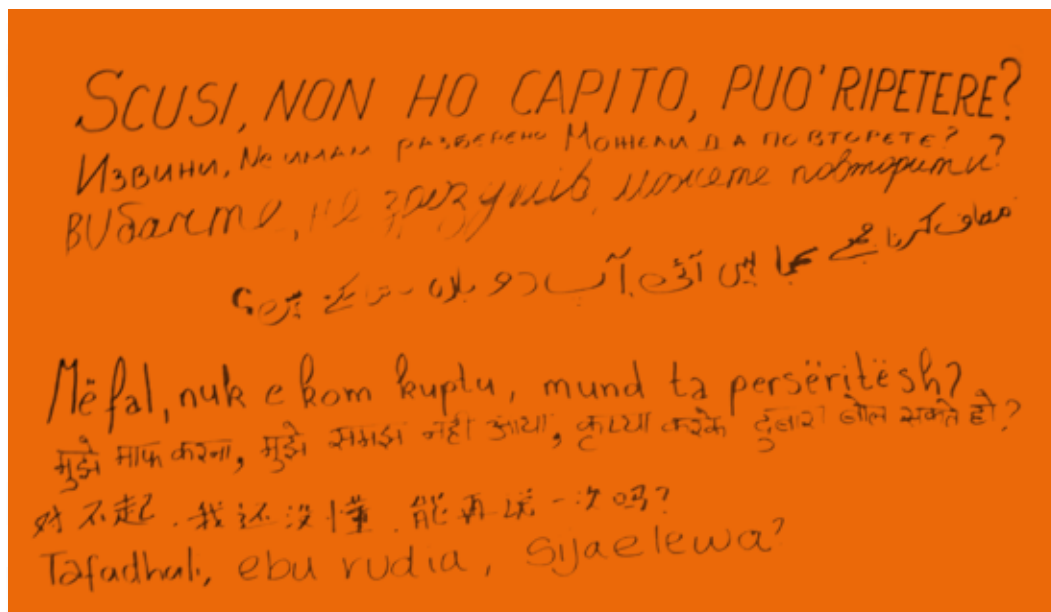 SCUSI, NON HO CAPITO, PUO' RIPETERE?
Извини, Не имам разберено Можели да повторете?
Вибачте, не зрозумів, можете повторити?
معاف کرنا مجھے نہیں آئی آپ دو بارہ سکتے ہیں؟
Më fal, nuk e kom kuptu, mund ta përsëritësh?
मुझे माफ करना, मुझे समझ नही आया, कृप्या करके दुबारा बोल सकते हो?
对不起.我还没懂.能再说一次吗?
Tafadhali, ebu rudia, sijaelewa?